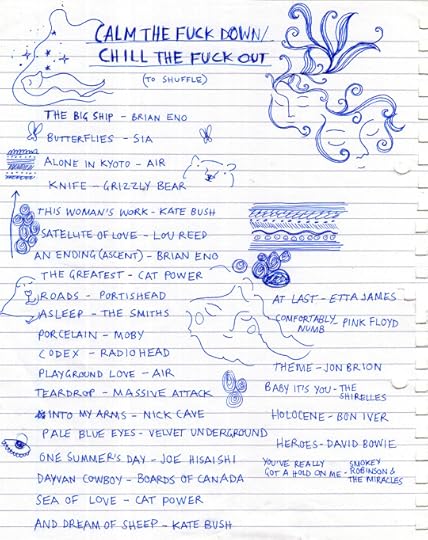 CALM THE FUCK DOWN/
CHILL THE FUCK OUT
(TO SHUFFLE)
THE BIG SHIP - BRIAN ENO
BUTTERFLIES - SIA
ALONE IN KYOTO - AIR
KNIFE - GRIZZLY BEAR
THIS WOMAN'S WORK - KATE BUSH
SATELLITE OF LOVE - LOU REED
AN ENDING (ASCENT) - BRIAN ENO
THE GREATEST - CAT POWER
ROADS - PORTISHEAD
ASLEEP - THE SMITHS
PORCELAIN - MOBY
CODEX - RADIOHEAD
PLAYGROUND LOVE - AIR
TEARDROP - MASSIVE ATTACK
INTO MY ARMS - NICK CAVE
PALE BLUE EYES - VELVET UNDERGROUND
ONE SUMMER'S DAY - JOE HISAISHI
DAYVAN COWBOY - BOARDS OF CANADA
SEA OF LOVE - CAT POWER
AND DREAM OF SHEEP - KATE BUSH
AT LAST - ETTA JAMES
COMFORTABLY NUMB - PINK FLOYD
THEME - JON BRION
BABY IT'S YOU - THE SHIRELLES
HOLOCENE - BON IVER
HEROES - DAVID BOWIE
YOU'VE REALLY GOT A HOLD ON ME - SMOKEY ROBINSON & THE MIRACLES